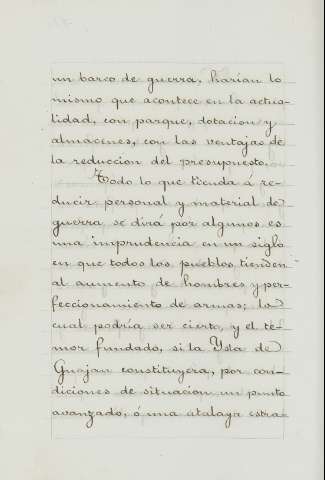 un barco de guerra, harian lo
mismo que acontece en la actua-
lidad, con parque, dotacion y
almacenes, con las ventajas de
la reduccion del presupuesto.
Todo lo que tienda á re-
ducir personal y material de
guerra se dirá por algunos es
una imprudencia en un siglo
en que todos los pueblos tienden
al aumento de hombres y per-
feccionamiento de armas; lo
cual podria ser cierto, y el te-
mor fundado, si la Ysla de
Guajan constituyera, por con-
diciones de situacion un punto
avanzado, ó una atalaya estra-